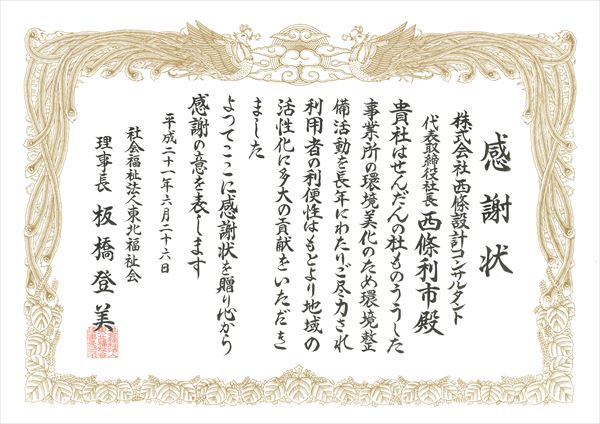 感謝状
株式会社 西條設計コンサルタント
代表取締役社長 西條利市殿
貴社はせんだんの杜ものううした
事業所の環境美化のため環境整
備活動を長年にわたりご尽力され
利用者の利便性はもとより地域の
活性化に多大の貢献をいただき
ました
よってここに感謝状を贈り心から
感謝の意を表します
平成二十一年六月二十六日
社会福祉法人東北福祉会
理事長 板橋登美